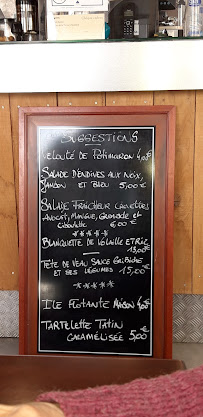 SUGGESTIONS
VELOUTÉ DE POTIMARRON 4,00€
SALADE D'ENDIVES AUX NOIX,
JAMBON ET BLEU 5,00€
SALADE FRAÎCHEUR CREVETTES
AVOCAT, MANGUE, GRENADE et
Ciboulette 6,00€
BLANQUETTE DE VOLAILLE ET RIZ
13,00€
TÊTE DE VEAU SAUCE GRIBICHE
ET SES LÉGUMES 15,00€
ILE FLOTTANTE MAISON 4,00€
TARTELETTE TATIN
CARAMÉLISÉE 5,00€